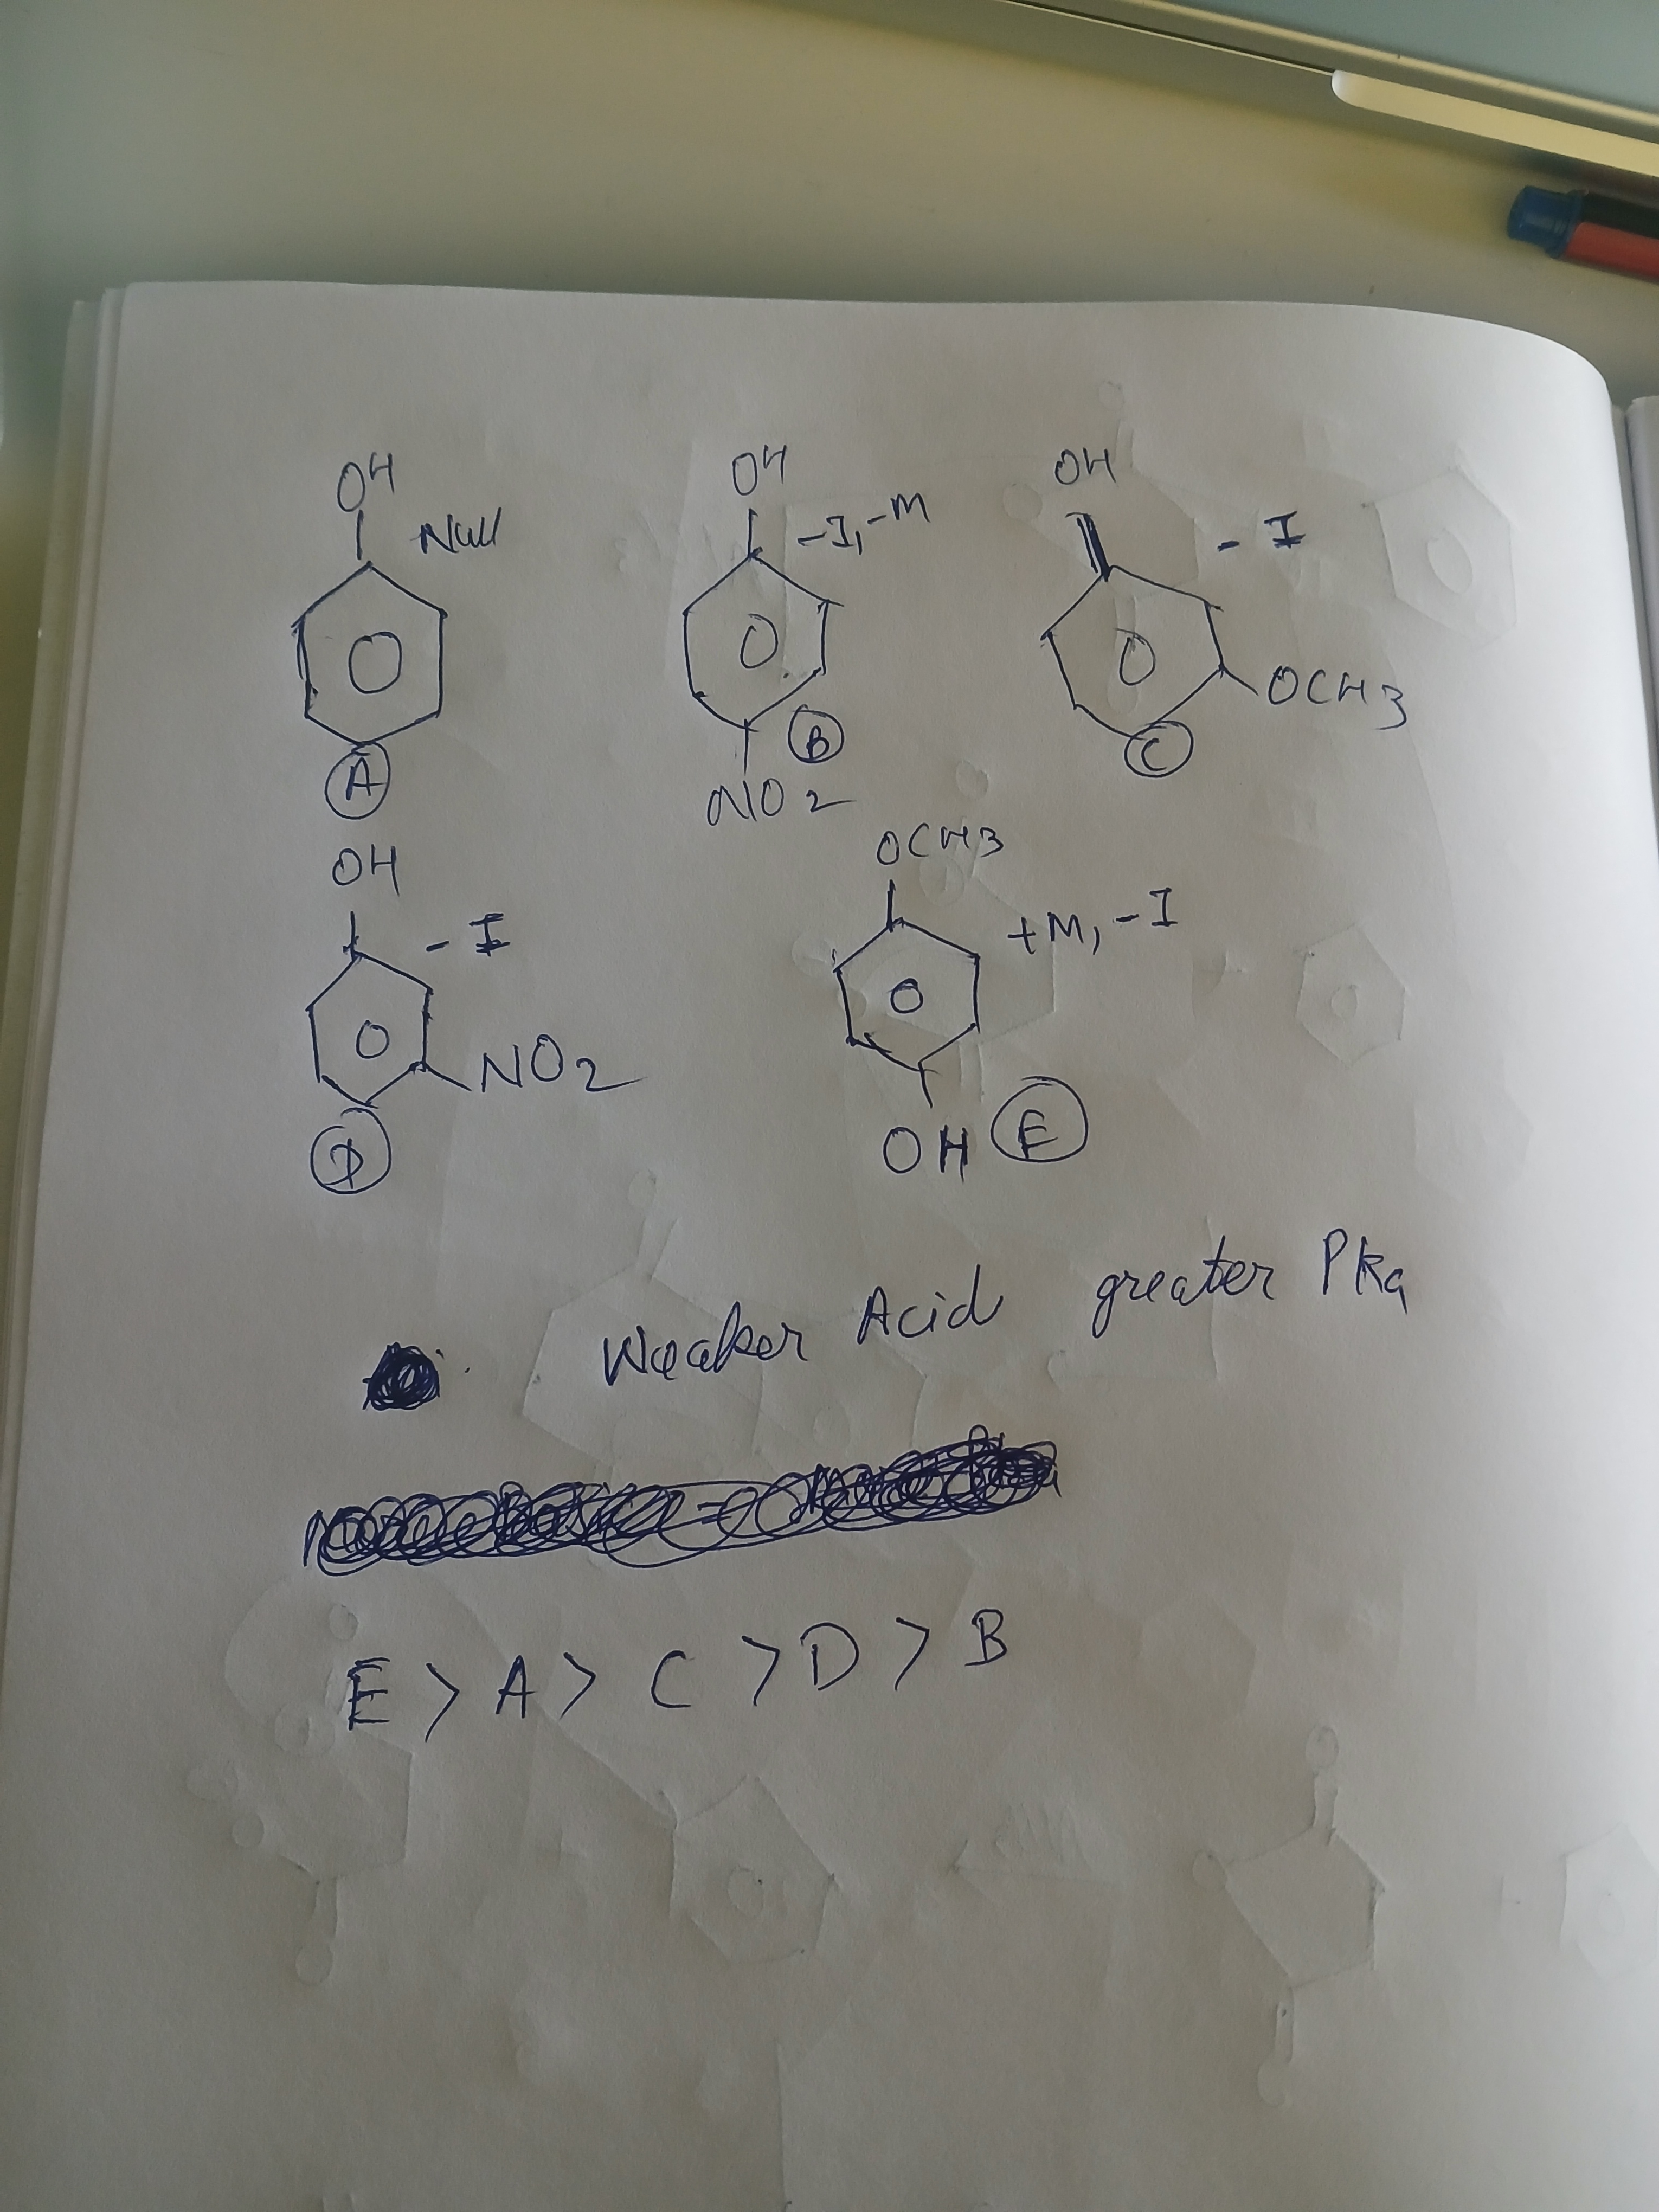 OH OH OH
Null -I, -M - I
OCH3
A B C
NO2
OCH3
OH
- I +M, -I
NO2
D OH E
Weaker Acid greater Pka
E > A > C > D > B